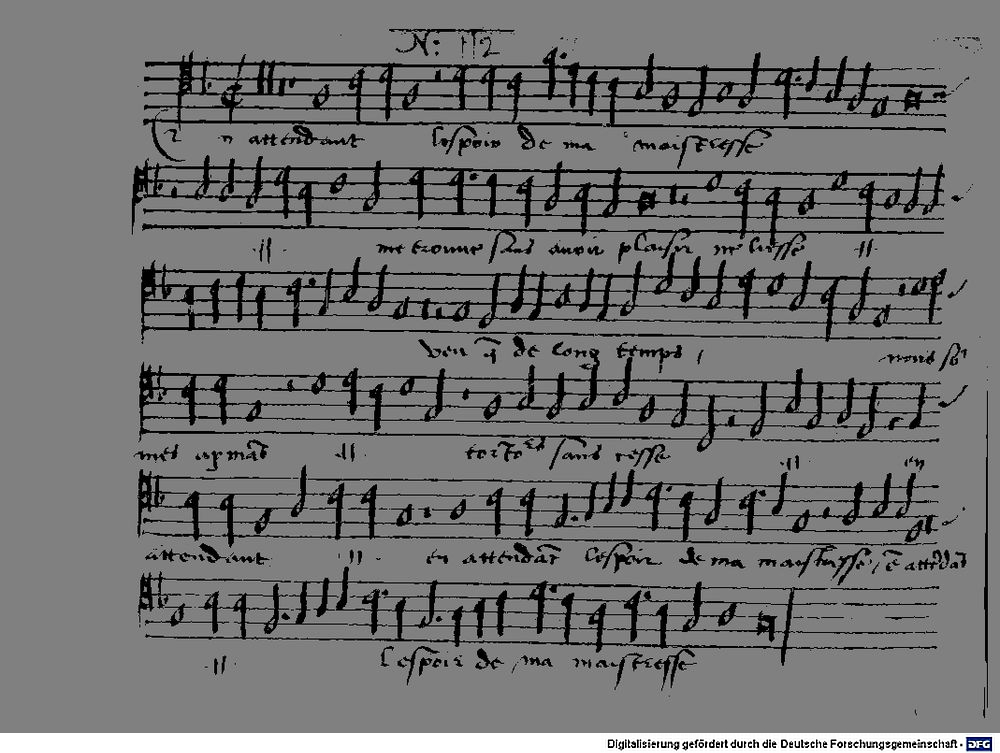 N: 112
n attendant lespoir de ma maistresse
me trouve sans avoir plaisir ne liesse
veu q̃ de long temps
mes sans cesse en
attendant en attendãt lespoir de ma maistresse, ẽ attẽdãt
lespoir de ma maistresse
Digitalisierung gefördert durch die Deutsche Forschungsgemeinschaft - DFG